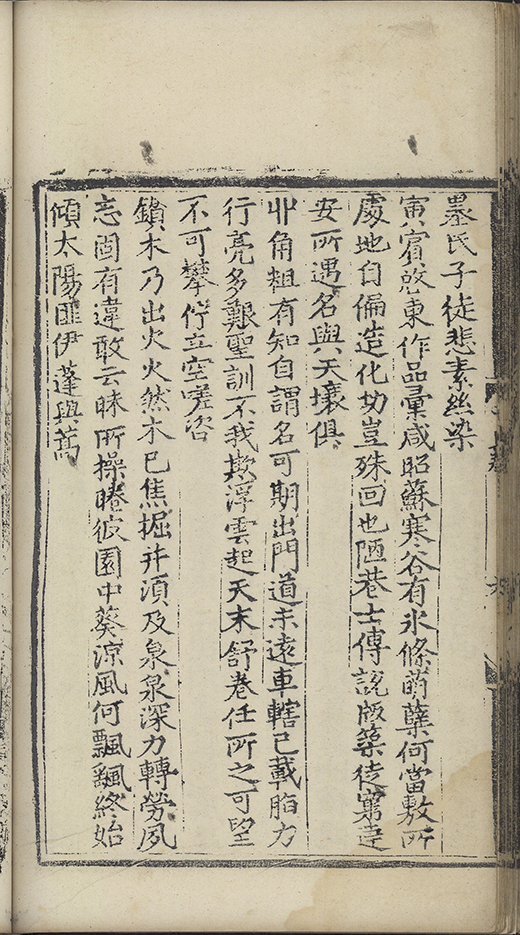 墨氏子徒悲素絲染
寅賓愆東作品彙咸昭蘇寒谷有氷條萌蘖何當敷所
處地自偏造化功豈殊回也陋巷士傅說版築徒窮達
安所遇名與天壤俱
丱角粗有知自謂名可期出門道未遠車轄已載脂力
行亮多艱聖訓不我欺浮雲起天末舒卷任所之可望
不可攀佇立空嗟咨
鑚木乃出火火然木已焦掘井須及泉泉深力轉勞夙
志固有違敢云昧所操睠彼園中葵涼風何飄飄終始
傾太陽匪伊蓬與蒿